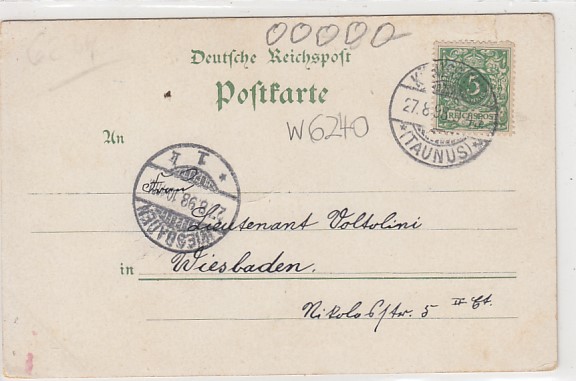 00000
Deutsche Reichspost
Postkarte
W6240
5
REICHSPOST
27.8.9
*(TAUNUS)*
An
* 1 *
27.8.98.10
WIESBADEN
Frau
Lieutenant Voltolini
in Wiesbaden.
Nikolasstr. 5 II Et.